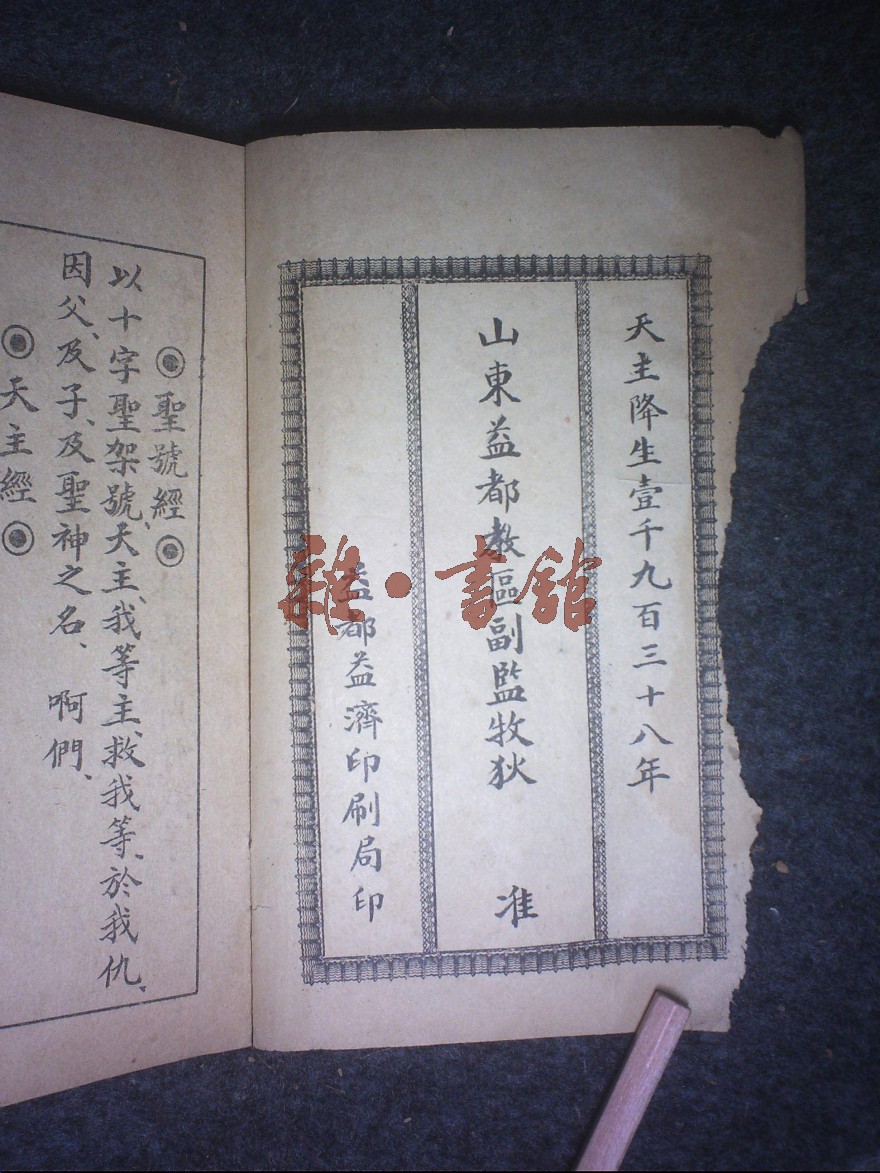 天主降生壹千九百三十八年
山東益都教區副監牧狄 准
益都益濟印刷局印
雜·書館
◉聖號經◉
以十字聖架號、天主、我等主、救我等、於我仇、
因父、及子、及聖神之名、 啊們、
◉天主經◉